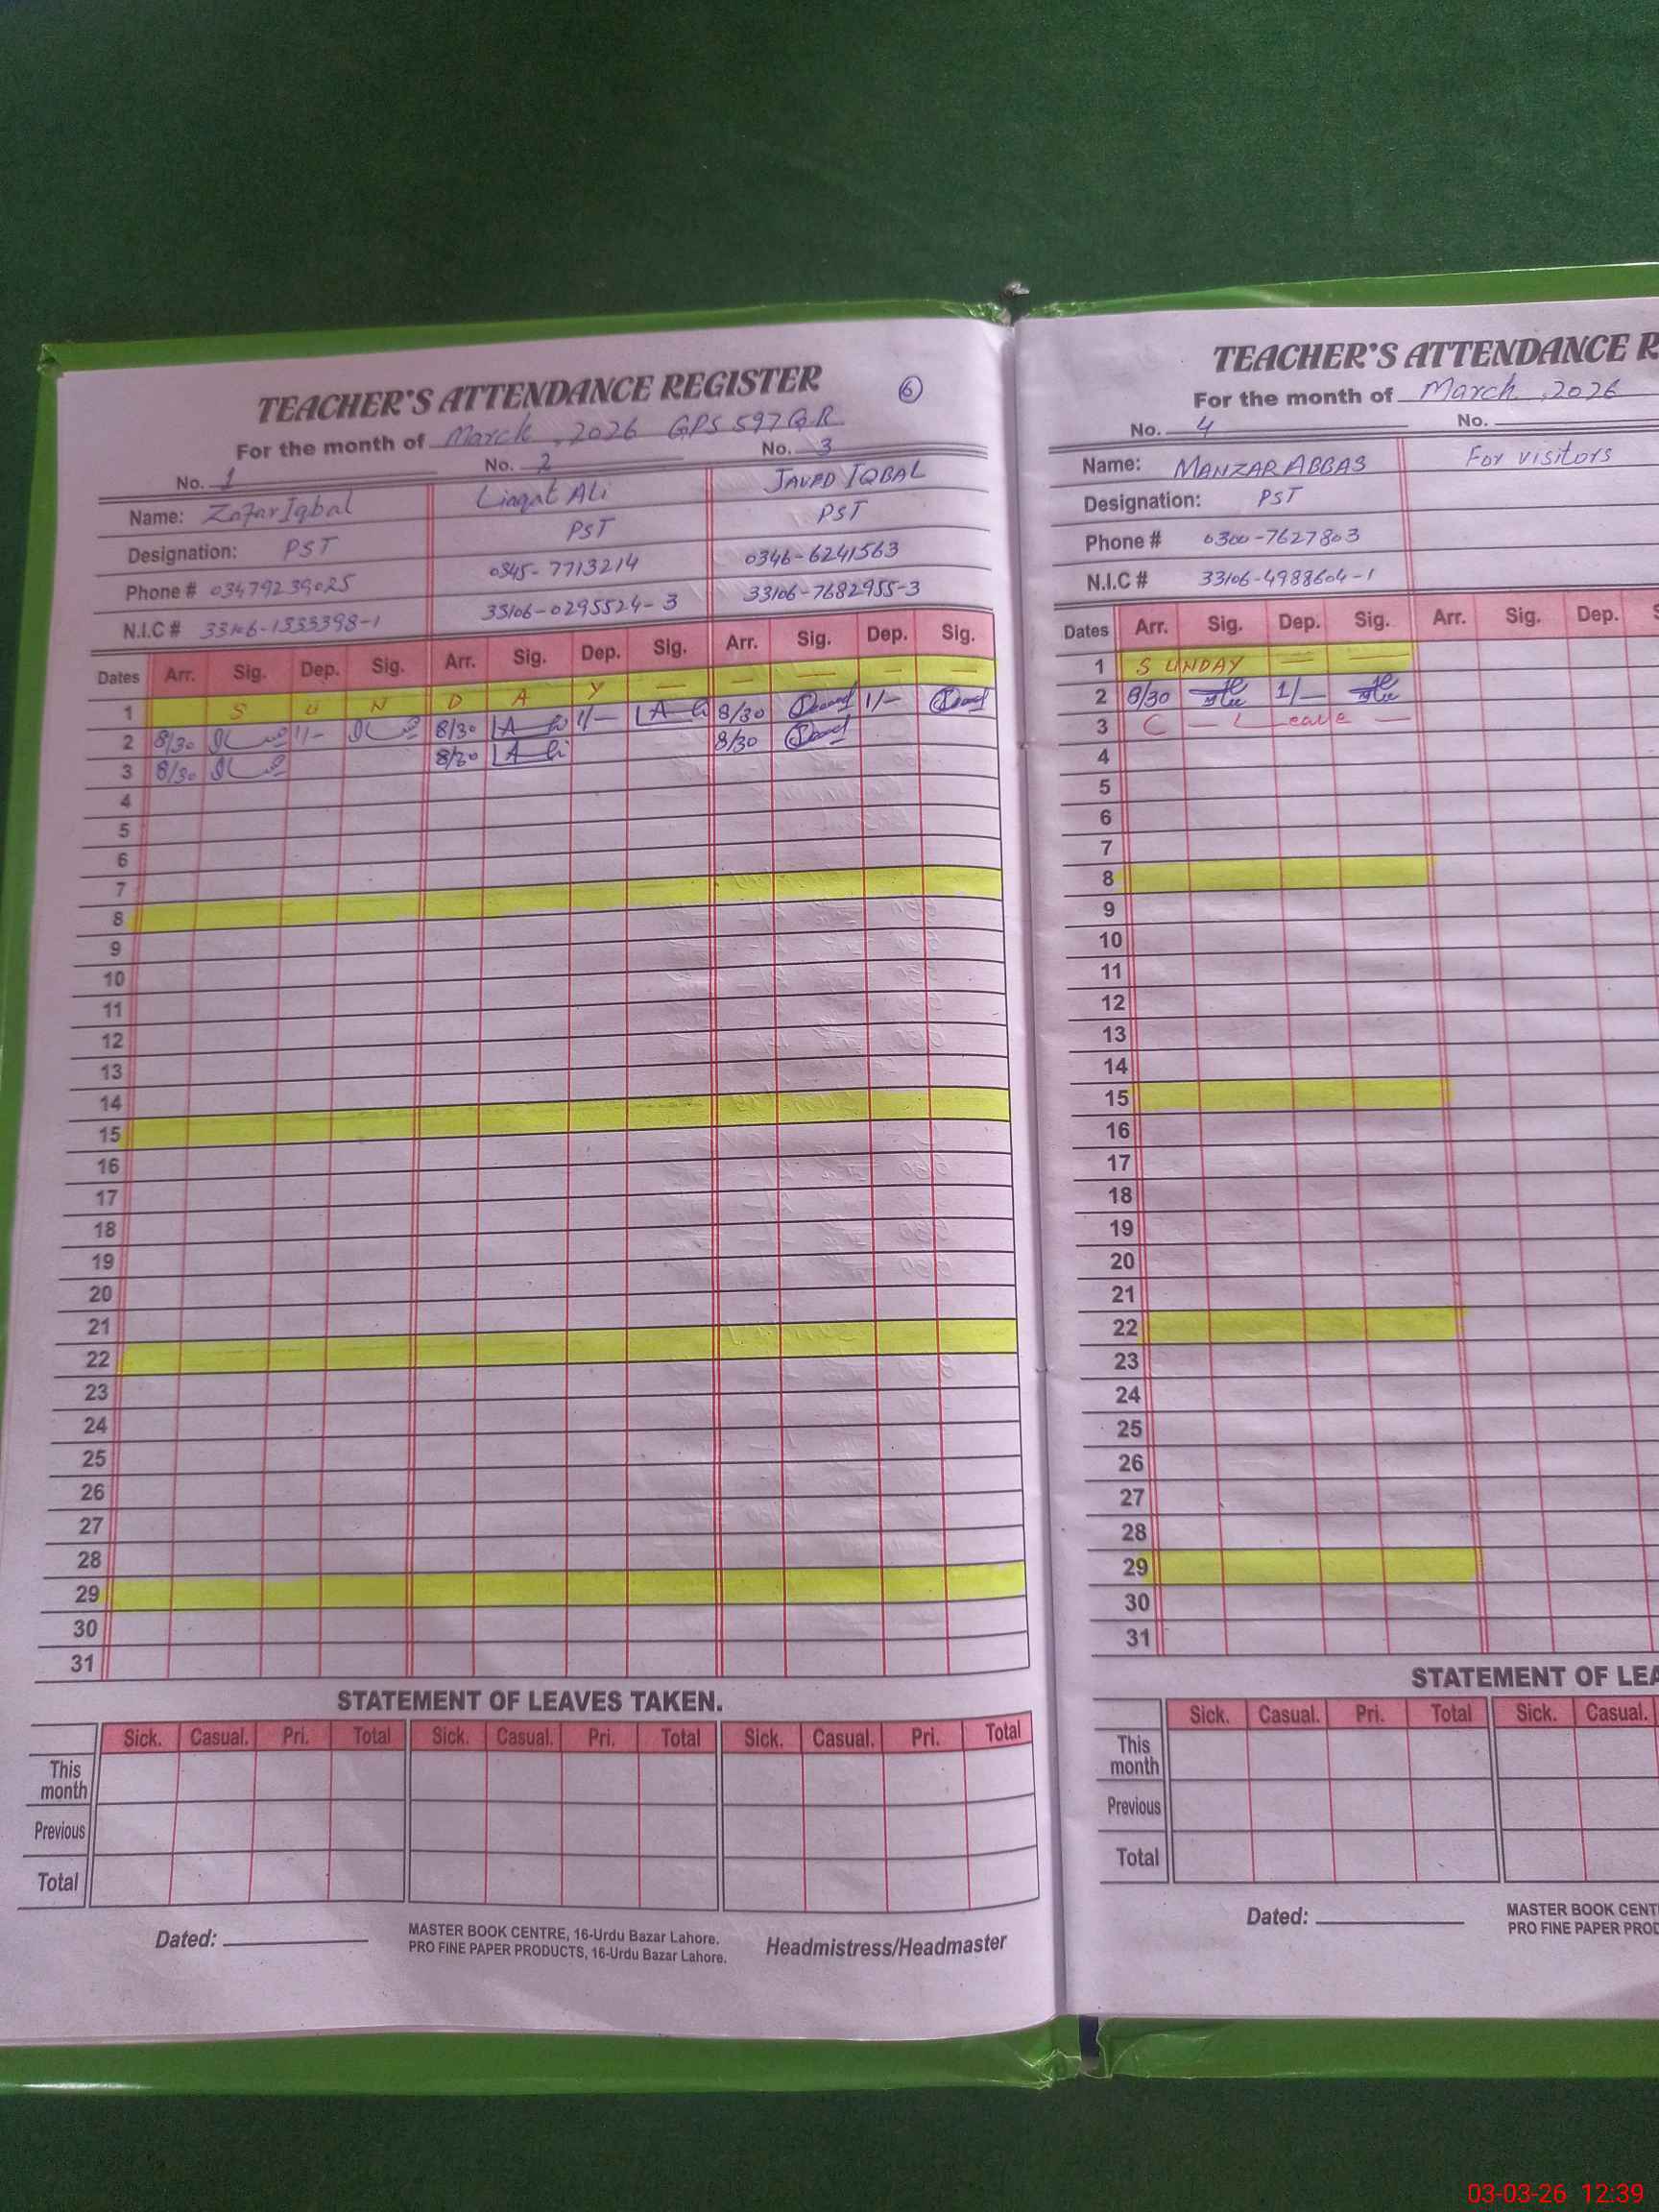 TEACHER'S ATTENDANCE REGISTER
6
For the month of March, 2026 GPS 597 GR
No. 1 No. 2 No. 3
Name: Zafar Iqbal Liaqat Ali JAVED IQBAL
Designation: PST PST PST
Phone # 03479239025 0345-7713214 0346-6241563
N.I.C # 33106-1333398-1 33106-0295524-3 33106-7682955-3
Dates Arr. Sig. Dep. Sig. Arr. Sig. Dep. Sig. Arr. Sig. Dep. Sig.
1 S U N D A Y — — — — —
2 8/30 1/- 8/30 1/- 8/30 1/-
3 8/30 8/30 8/30
4
5
6
7
8
9
10
11
12
13
14
15
16
17
18
19
20
21
22
23
24
25
26
27
28
29
30
31
STATEMENT OF LEAVES TAKEN.
Sick. Casual. Pri. Total Sick. Casual. Pri. Total Sick. Casual. Pri. Total
This month
Previous
Total
Dated:
MASTER BOOK CENTRE, 16-Urdu Bazar Lahore.
PRO FINE PAPER PRODUCTS, 16-Urdu Bazar Lahore.
Headmistress/Headmaster
TEACHER'S ATTENDANCE R
For the month of March, 2026
No. 4 No.
Name: MANZAR ABBAS For visitors
Designation: PST
Phone # 0300-7627803
N.I.C # 33106-4988604-1
Dates Arr. Sig. Dep. Sig. Arr. Sig. Dep. S
1 SUNDAY — —
2 8/30 1/-
3 C — Leave —
4
5
6
7
8
9
10
11
12
13
14
15
16
17
18
19
20
21
22
23
24
25
26
27
28
29
30
31
STATEMENT OF LEA
Sick. Casual. Pri. Total Sick. Casual.
This month
Previous
Total
Dated:
MASTER BOOK CENT
PRO FINE PAPER PROD
03-03-26 12:39